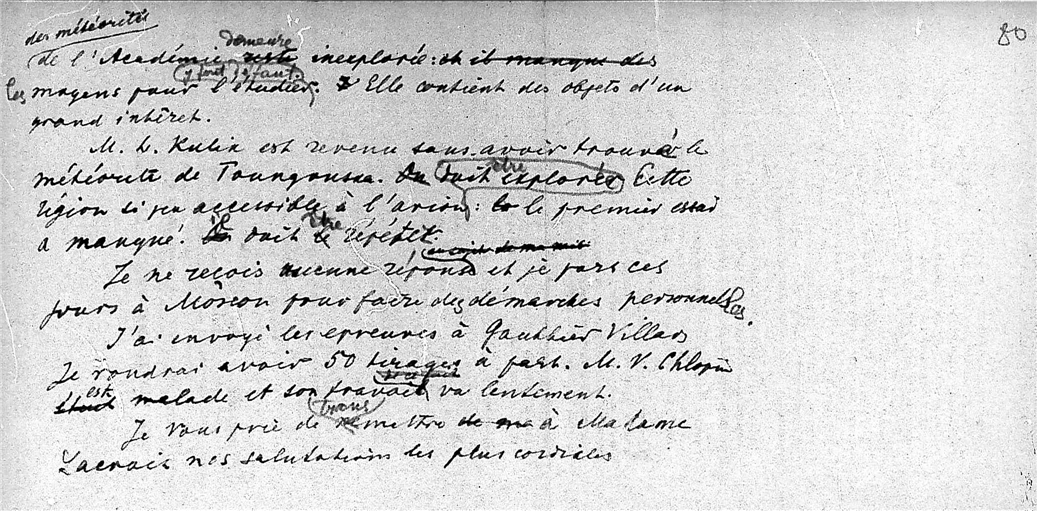 des météorites
80
demeure
de l'Académie reste inexplorée: et il manque des
y font y faut.
les moyens pour l'étudier. Elle contient des objets d'un
grand intêret.
M. L. Kulik est revenu sans avoir trouvé le
être
météorite de Toungouska. On doit explorer Cette
région si peu accessible à l'avion: le premier essai
il être
a manqué. On doit le répéter.
Je ne reçois aucune réponse et je pars ces
jours à Moscou pour faire des démarches personnelles.
J'ai envoyé les epreuves à Gauthier Villars
Je voudrai avoir 50 tirages à part. M. V. Chlopin
est
était malade et son travail va lentement.
trans
Je vous prie de remettre de ma à Madame
Lacroix nos salutations les plus cordiales